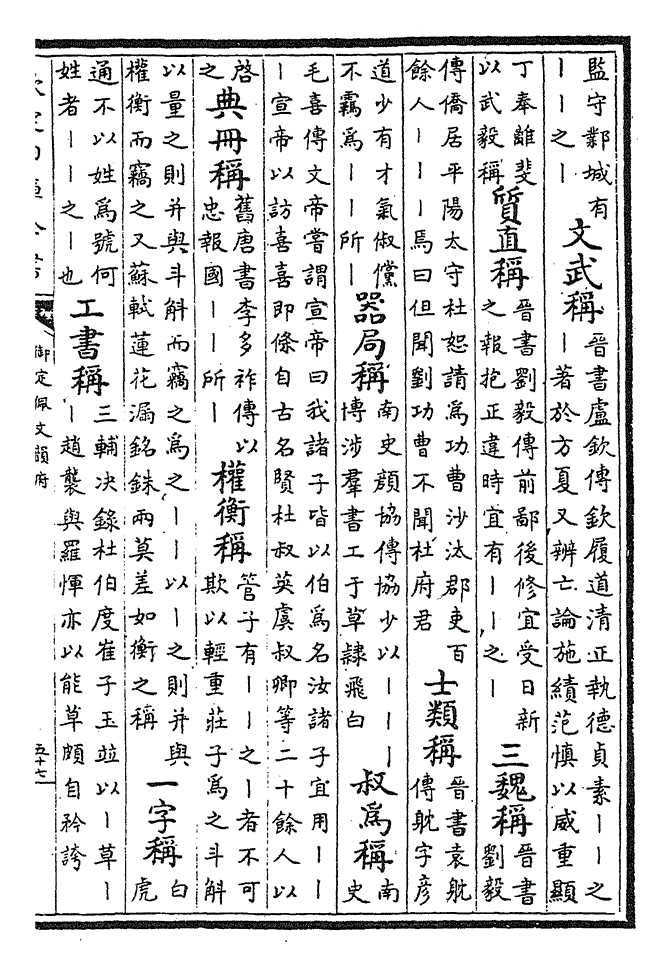 監守鄴城有
丨丨之丨
文武稱
晉書盧欽傳欽履道清正執德貞素丨丨之
丨著於方夏又辨亡論施績范慎以威重顯
丁奉離斐
以武毅稱
質直稱
晉書劉毅傳前鄙後修宜受日新
之報抱正違時宜有丨丨之丨
三魏稱
晉書
劉毅
傳僑居平陽太守杜恕請爲功曹沙汰郡吏百
餘人丨丨丨焉曰但聞劉功曹不聞杜府君
士類稱
晉書袁耽
傳耽字彥
道少有才氣俶儻
不羈爲丨丨所丨
器局稱
南史顏協傳協少以丨丨丨
博涉羣書工于草隸飛白
叔爲稱
南
史
毛喜傳文帝嘗謂宣帝曰我諸子皆以伯爲名汝諸子宜用丨丨
丨宣帝以訪喜喜即條自古名賢杜叔英虞叔卿等二十餘人以
啓
之
典冊稱
舊唐書李多祚傳以
忠報國丨丨所丨
權衡稱
管子有丨丨之丨者不可
欺以輕重莊子爲之斗斛
以量之則并與斗斛而竊之爲之丨丨以丨之則并與
權衡而竊之又蘇軾蓮花漏銘銖兩莫差如衡之稱
一字稱
白
虎
通不以姓爲號何
姓者丨丨之丨也
工書稱
三輔决錄杜伯度崔子玉竝以丨草丨
丨趙襲與羅惲亦以能草頗自矜誇
御定佩文韻府
五十七